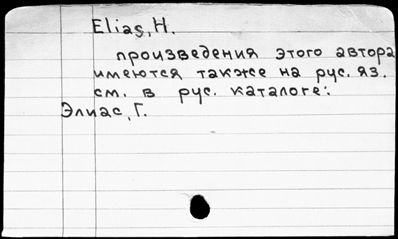 Elias, H.
произведения этого автора
имеются также на рус. яз.
см. в рус. каталоге:
Элиас, Г.